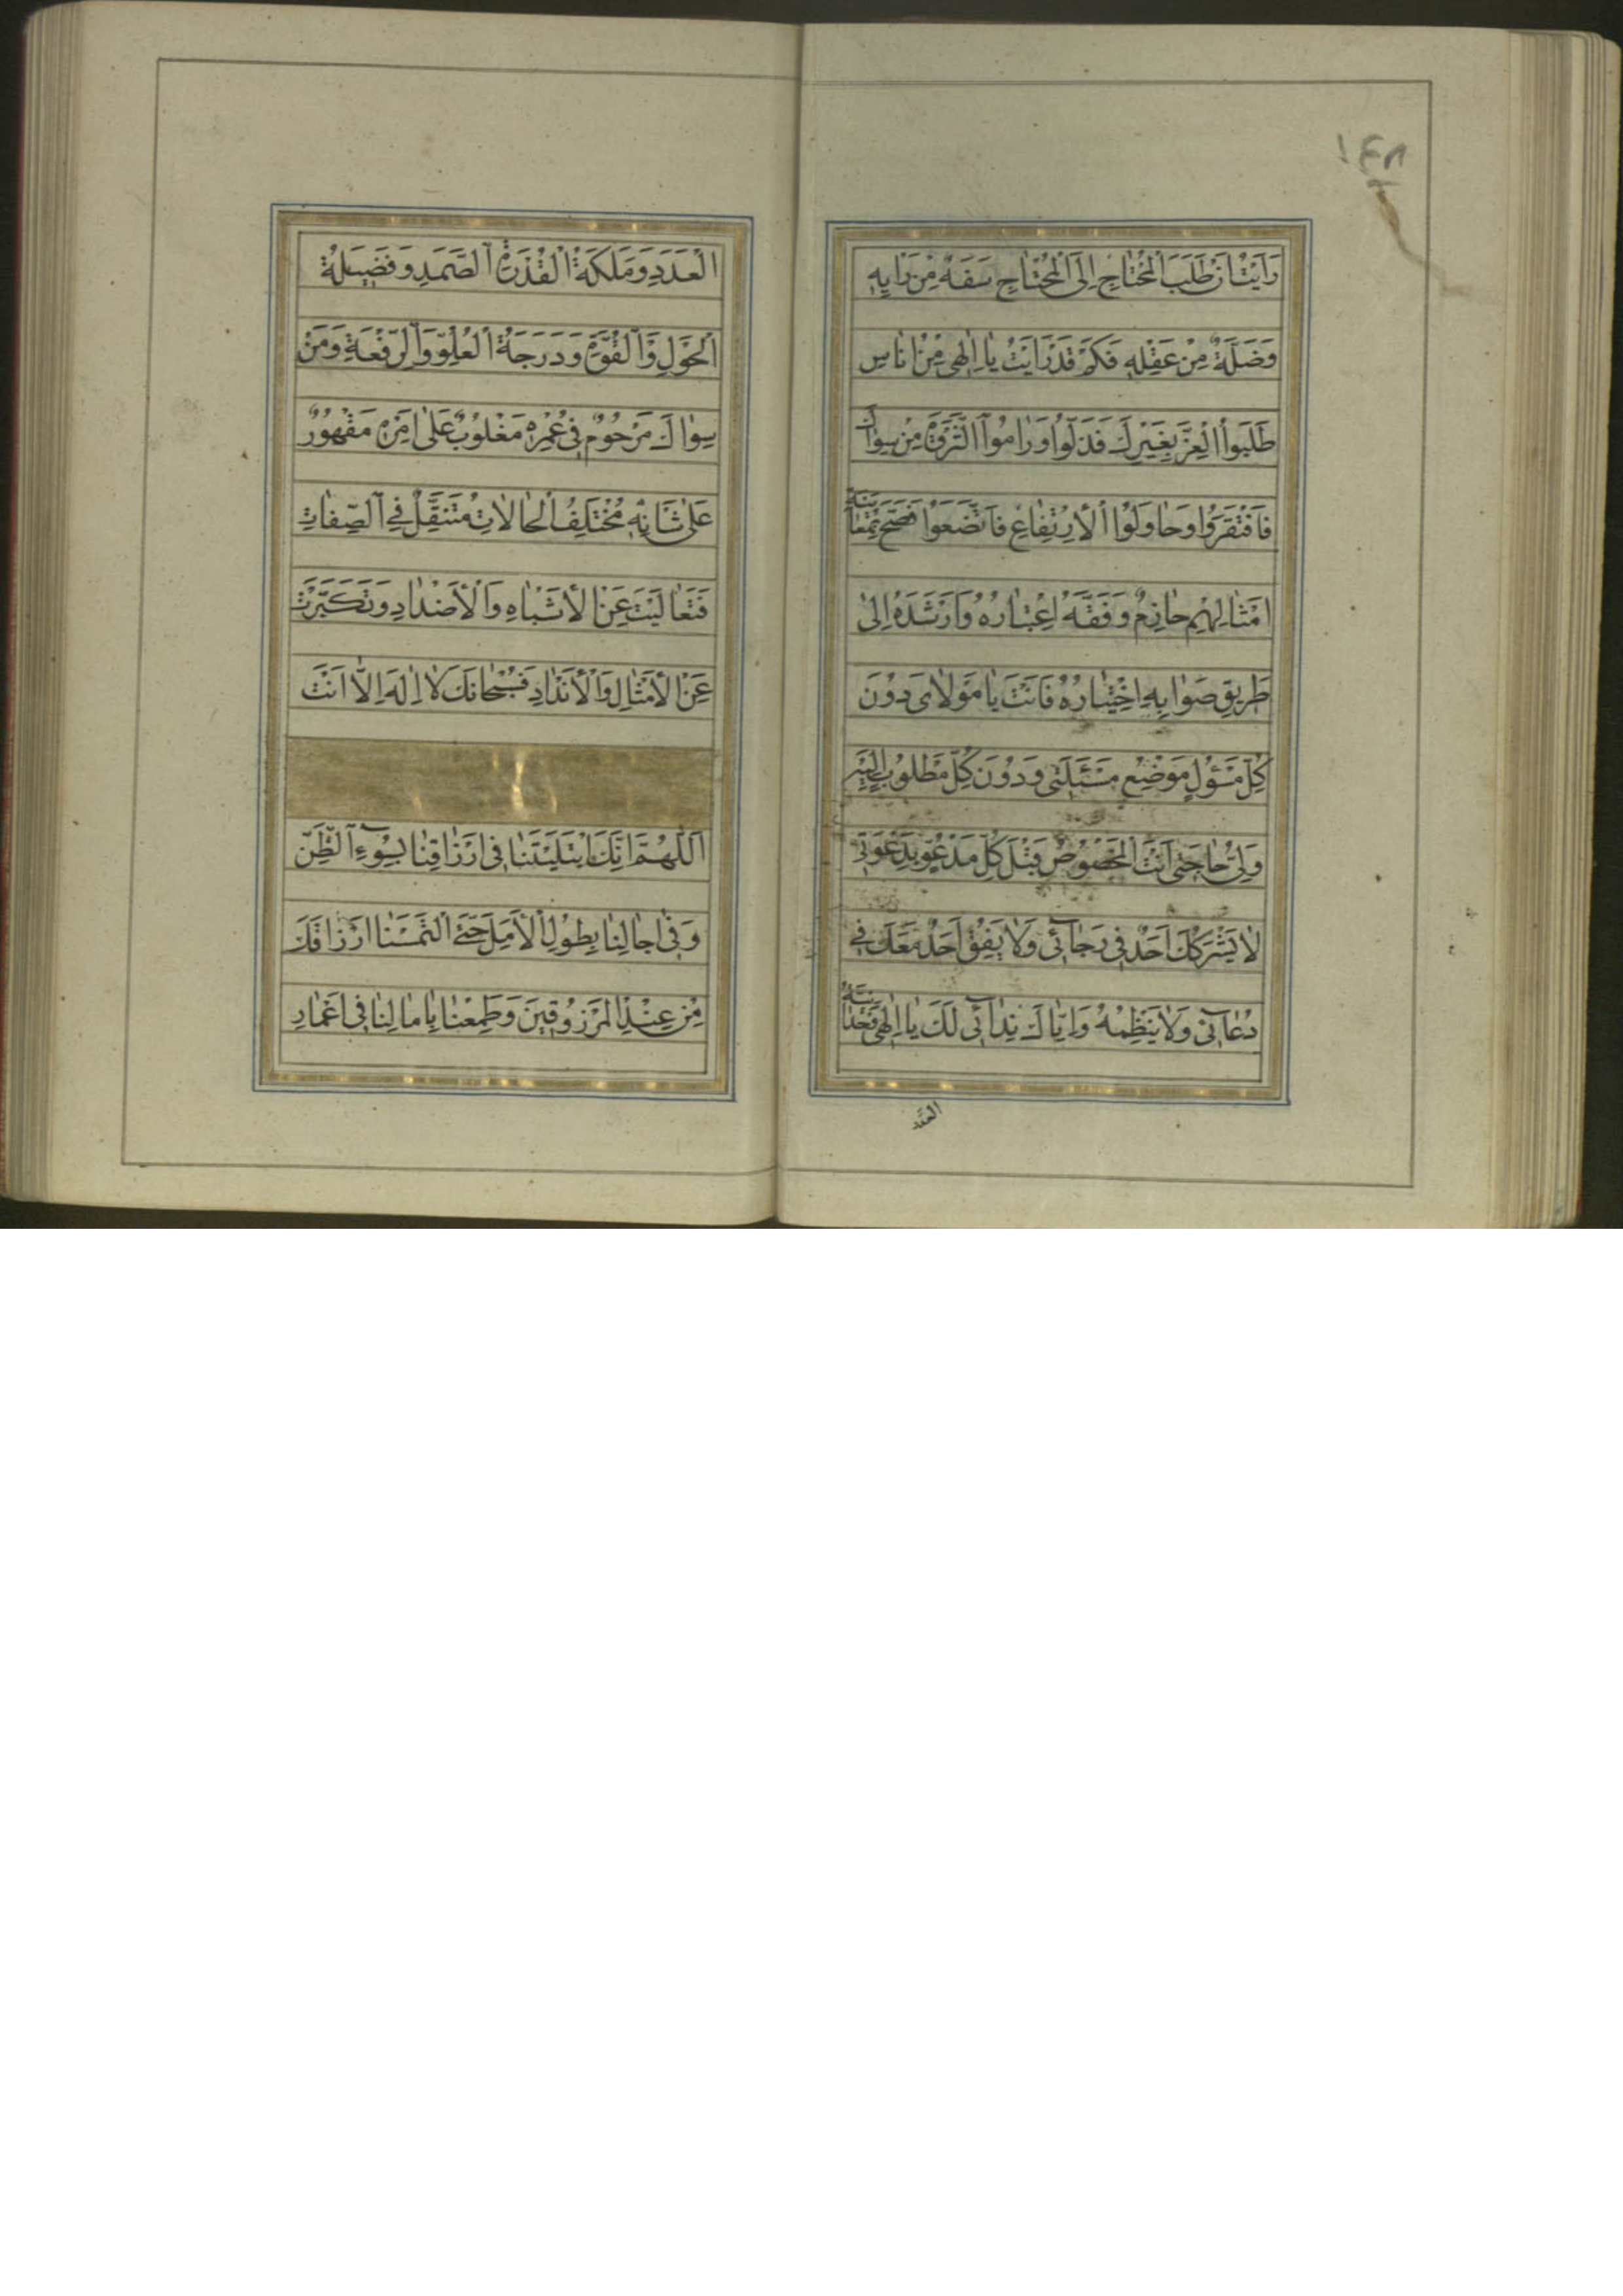 رَاَيْتُ اَنَّ طَلَبَ الْمُحْتٰاجِ اِلَى الْمُحْتٰاجِ سَفَهٌ مِنْ رَاْيِهِ
وَضَلَّةٌ مِنْ عَقْلِهِ فَكَمْ قَدْ رَاَيْتُ يٰا اِلٰهى مِنْ اُنٰاسٍ
طَلَبُوا الْعِزَّ بِغَيْرِكَ فَذَلُّوا وَرٰامُوا الثَّرْوَةَ مِنْ سِوٰاكَ
فَاَفْتَقَرُوا وَحٰاوَلُوا الْاِرْتِفٰاعَ فَاتَّضَعُوا فَصَحَّ بِمُعٰايَنَةِ
اَمْثٰالِهِمْ حٰازِمٌ وَفَّقَهُ اِعْتِبٰارُهُ وَاَرْشَدَهُ اِلىٰ
طَرِيقِ صَوٰابِهِ اِخْتِيٰارُهُ فَاَنْتَ يٰا مَوْلاٰىَ دُونَ
كُلِّ مَسْؤُلٍ مَوْضِعُ مَسْئَلَتى وَدُونَ كُلِّ مَطْلُوبٍ اِلَيْهِ
وَلِىُّ حٰاجَتى اَنْتَ الْمَخْصُوصُ قَبْلَ كُلِّ مَدْعُوٍّ بِدَعْوَتى
لاٰ يَشْرَكُكَ اَحَدٌ فى رَجٰآئى وَلاٰ يَفِقُ اَحَدٌ مَعَكَ فى
دُعٰآئى وَلاٰ يَنْظِمُهُ وَاِيّٰاكَ نِدٰآئى لَكَ يٰا اِلٰهى وَحْدٰانِيَّةُ
العدد
الْعَدَدِ وَمَلَكَةُ الْقُدْرَةِ الصَّمَدِ وَفَضِيلَةُ
الْحَوْلِ وَالْقُوَّةِ وَدَرَجَةُ الْعُلُوِّ وَالرِّفْعَةِ وَمَنْ
سِوٰاكَ مَرْحُومٌ فى عُمْرِهِ مَغْلُوبٌ عَلىٰ اَمْرِهِ مَقْهُورٌ
عَلىٰ شَانِهِ مُخْتَلِفُ الْحٰالاٰتِ مُتَنَقِّلٌ فِى الصِّفٰاتِ
فَتَعٰالَيْتَ عَنِ الْاَشْبٰاهِ وَالْاَضْدٰادِ وَتَكَبَّرْتَ
عَنِ الْاَمْثٰالِ وَالْاَنْدٰادِ فَسُبْحٰانَكَ لاٰ اِلٰهَ اِلاّٰ اَنْتَ
اَللّٰهُمَّ اِنَّكَ ابْتَلَيْتَنٰا فى اَرْزٰاقِنٰا بِسُوٓءِ الظَّنِّ
وَفى اٰجٰالِنٰا بِطُولِ الْاَمَلِ حَتَّى الْتَمَسْنٰا اَرْزٰاقَكَ
مِنْ عِنْدِ الْمَرْزُوقِينَ وَطَمِعْنٰا بِاٰمٰالِنٰا فى اَعْمٰارِ